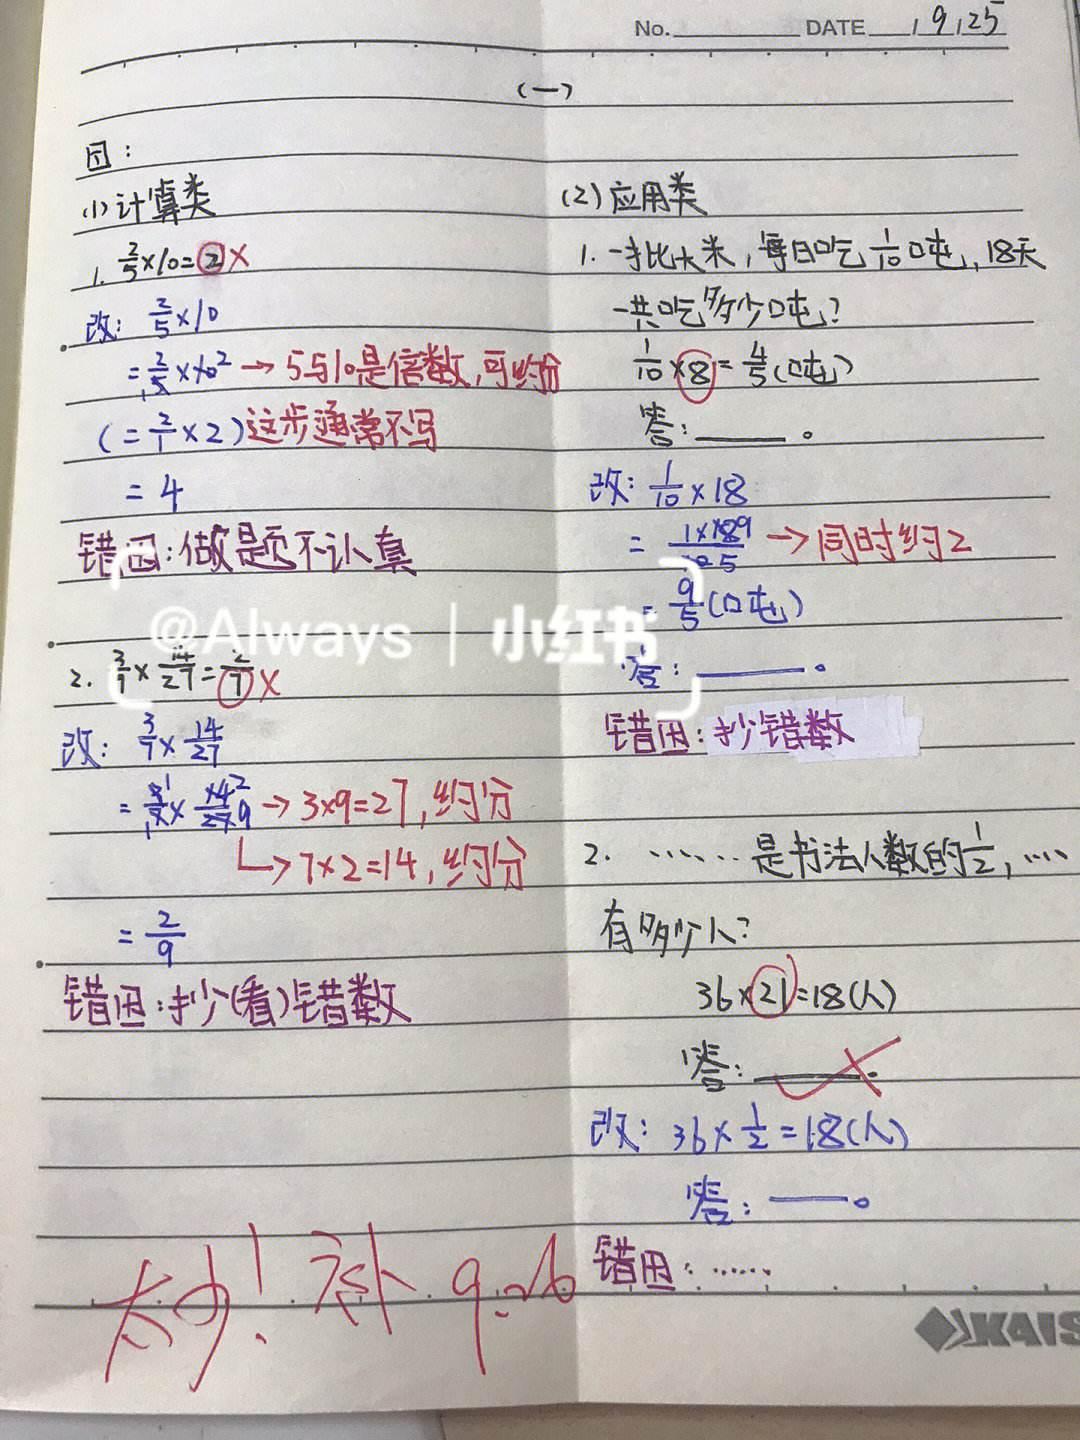 No. DATE 9.25
(一)
(1)计算类
1. 2/5×10=2 ×
改: 2/5×10
=2/5×10 2 → 5与10是倍数,可约分
(=2/1×2)这步通常不写
=4
错因:做题不认真
@Always | 小红书
2. 3/7×14/27=2/7 ×
改: 3/7×14/27
=3/7×14/27 → 3×9=27,约分
→ 7×2=14,约分
=2/9
错因:抄(看)错数
太少!补 9.26
(2)应用类
1. 一批大米,每日吃1/10吨,18天
一共吃多少吨?
1/10×8=4/5(吨)
答:____。
改: 1/10×18
=1×18 9/10 5 → 同时约2
=9/5(吨)
答:____。
错因:抄错数
2. ……是书法人数的1/2,……
有多少人?
36×21=18(人)
答:____.
改:36×1/2=18(人)
答:____。
错因:……
KAIS